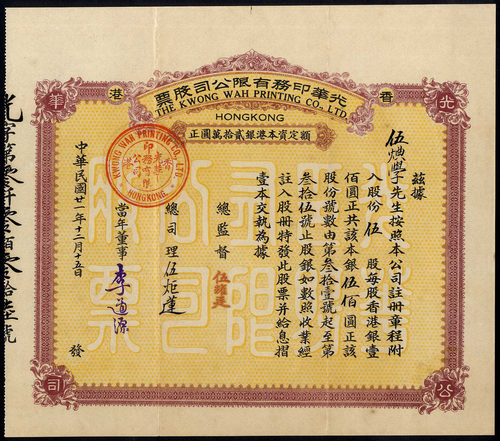 光華印務有限公司股票
THE KWONG WAH PRINTING CO., LTD.
香港
HONGKONG
額定資本港銀貳拾萬圓正
光
華
公
司
茲據
伍 學 先生按照本公司註冊章程附
入股份 伍 股每股香港銀壹
佰圓正共該本銀 伍佰 圓正該
股份號數由第 叁拾壹 號起至第
叁拾伍 號止股銀如數照收業經
註入股冊特發此股票并給息摺
壹本交執為據
總監督
總司理 伍炬蓮
當年董事 李道源
中華民國廿一年十二月十五日 發
KWONG WAH PRINTING CO., LTD.
HONGKONG
香港
光華
印務有限
公司
光字第零仟零佰零拾 號
股份
公司
有限
股票